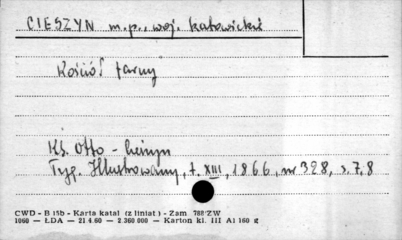 CIESZYN m.p., woj. katowickie
Kościół farny
Ks. Otto - Cieszyn
Tyg. Illustrowany, t. XIII, 1866, nr 328, s. 7, 8
CWD - B 15b - Karta katal (z liniat) - Zam 788 ZW
1060 — ŁDA — 21 4.60 — 2 360 000 — Karton kl. III A1 160 g